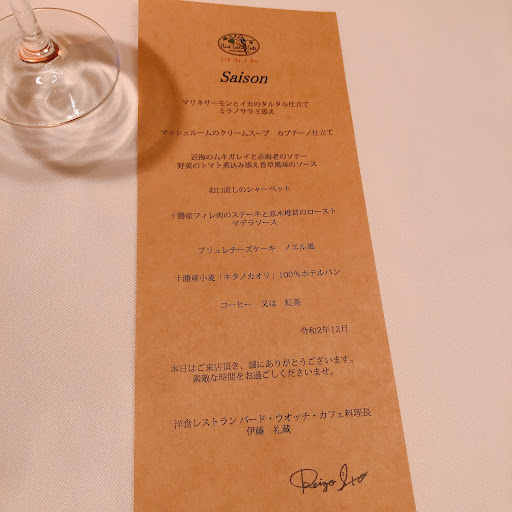 Saison
マリネサーモンとイカのタルタル仕立て
ミラノサラミ添え
マッシュルームのクリームスープ カプチーノ仕立て
近海のムキガレイと赤海老のソテー
野菜のトマト煮込み添え香草風味のソース
お口直しのシャーベット
十勝産フィレ肉のステーキと原木椎茸のロースト
マデラソース
ブリュレチーズケーキ ノエル風
十勝産小麦「キタノカオリ」100%ホテルパン
コーヒー 又は 紅茶
令和2年12月
本日はご来店頂き、誠にありがとうございます。
素敵な時間をお過ごしくださいませ。
洋食レストラン バード・ウオッチ・カフェ料理長
伊藤 礼蔵
Reizo Ito